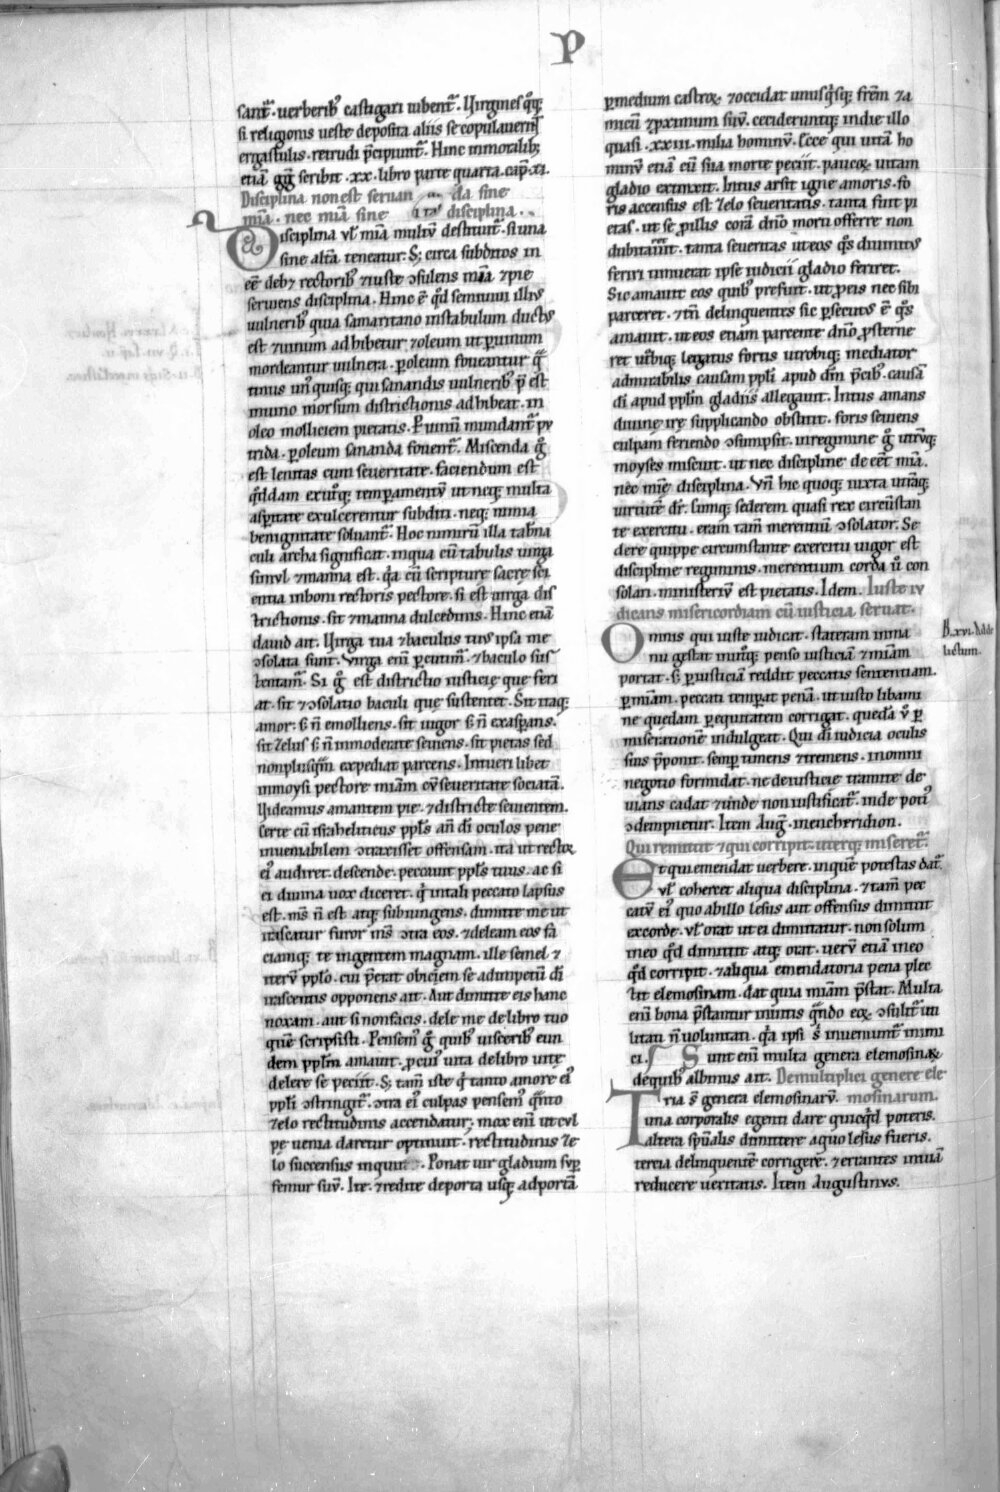 P
sant᷑. uerberib; castigari iubent᷑. Uirgines q̊q;
si religionis ueste deposita aliis se copulauerint
ergastulis. retrudi p̄cipiunt᷑. Hinc in moralib;
etiā gg̃ scribit .xx. libro parte quarta. cap̄. xi.
Disciplina non est seruanda sine
mīa. nec mīa sine disciplina.
Disciplina ul̓ mīa multū destruit᷑. si una
sine altā teneatur. S; circa subditos in
ēē deb; rectorib; ⁊ iuste ɔsulens mīa ⁊ pie
seruiens disciplina. Hinc ē q̃d semiuiui illius
uulnerib; quia samaritano in stabulum ductus
est ⁊ uinum adhibetur ⁊ oleum ut p̱ uinum
mordeantur uulnera. p̱ oleum foueantur q̄
tinus un᷒ quisq; qui sanandis uulnerib; p̄est
in uino morsum districtionis adhibeat. in
oleo molliciem pietatis. P̱ uinū mundant᷑ pu
trida. p̱ oleum sananda fouent᷑. Miscenda g̊
est lenitas cum seueritate. faciendum est
q̊ddam ex utq; temp̱amentū ut neq; multa
asp̱itate exulcerentur subditi. neq; nimia
benignitate soluant᷑. Hoc nimirū illa tab̄na
culi archa significat. in qua cū tabulis uirga
simul ⁊ manna est. q̇a cū scripture sacre sci
entia in boni rectoris pectore. si est uirga dis
trictionis. sit ⁊ manna dulcedinis. Hinc etiā
dauid ait. Uirga tua ⁊ baculus tuus ipsa me
ɔsolata sunt. Uirga enī p̱cutim᷑. ⁊ baculo sus
tentam᷑. Si g̊ est districtio iusticię que feri
at. sit ⁊ ɔsolatio baculi que sustentet. Sit itaq;
amor. s; n̄ emolliens. sit uigor s; n̄ exasp̱ans.
sit zelus s; n̄ inmoderate seuiens. sit pietas sed
non plusq̄m expediat parcens. Intueri libet
in moysi pectore mīam cū seueritate sociatā.
Uideamus amantem pie. ⁊ districte seuientem.
Certe cū israheliticus pp̄ls an̄ di oculos pene
inueniabilem ɔtraxisset offensam. ita ut rector
ei᷒ audiret. descende. peccauit pp̄ls tuus. ac si
ei diuina uox diceret. q̇ in tali peccato lapsus
est. ms̄ n̄ est atq; subiungens. dimitte me ut
irascatur furor ms̄ ɔtra eos. ⁊ deleam eos fa
ciamq; te in gentem magnam. ille semel ⁊
iterū pp̄lo. cui p̄erat obicem se ad inpetū di
irascentis opponens ait. Aut dimitte eis hanc
noxam. aut si non facis. dele me de libro tuo
quē scripsisti. Pensem᷒ g̊ quib; uiscerib; eun
dem pp̄lm amauit. p̱ cui᷒ uita de libro uite
delere se peciit. S; tam̄ iste q̇ tanto amore ei᷒
pp̄li ɔstringit᷑. ɔtra ei᷒ culpas pensem᷒ q̄nto
zelo rectitudinis accendatur. mox enī ut cul
pę uenia daretur optinuit. rectitudinis ze
lo succensus inquit. Ponat uir gladium sup̱
femur suū. Ite. ⁊ redite de porta usq; ad portā
p̱ medium castroꝝ. ⁊ occidat unusq̇sq; fr̄em ⁊ a
micū ⁊ p̱ximum suū. cecideruntq; in die illo
quasi .xxiii. milia hominū. Ecce qui uitā ho
minū etiā cū sua morte peciit. paucoꝝ uitam
gladio extinxit. Intus arsit igne amoris. fo
ris accensus est zelo seueritatis. tanta fuit pi
etas. ut se p̱ illis corā dn̄o morti offerre non
dubitaret. tanta seueritas ut eos q̇s diuinitus
feriri timuerat ipse iudicii gladio feriret.
Sic amauit eos quib; prefuit. ut p̱ eis nec sibi
parceret. ⁊ tn̄ delinquentes sic p̱secutus ē q̇s
amauit. ut eos etiam parcente dn̄o p̱sterne
ret utͥbiq; legatus fortis utrobiq; mediator
admirabilis causam pp̄li apud dm̄ p̄cib; causā
di apud pp̄lm gladiis allegauit. Intus amans
diuine ire supplicando obstitit. foris seuiens
culpam feriendo ɔsumpsit. in regimine g̊ utrūq;
moyses miscuit. ut nec discipline de eēt mīa.
nec mīe disciplina. Vn̄ hic quoq; iuxta utrāq;
uirtutē dr̄. Cumq; sederem quasi rex circūstan
te exercitu. eram tam̄ merentiū ɔsolator. Se
dere quippe circumstante exercitu uigor est
discipline regiminis. merentium corda ů con
solari. ministeriū est pietatis. Idem. Iuste iu
dicans misericordiam cū iusticia seruat.
Omnis qui iuste iudicat. stateram in ma
nu gestat in utͦq; penso iusticiā ⁊ mīam
portat. s; p̱ iusticiā reddit peccatis sententiam.
p̱ mīam. peccati temp̱at penā. ut iusto libami
ne quędam p̱ equitatem corrigat. quedā ů p̱
miserationē indulgeat. Qui di iudicia oculis
suis p̄ponit. semp̱ timens ⁊ tremens. in omni
negotio formidat. ne de iusticie tramite de
uians cadat ⁊ unde non iustificat᷑. inde poti᷒
ɔdempnetur. Item Aug̃. in encheridion.
Qui remittit ⁊ qui corripit. uterq; miseret᷑.
Et qui emendat uerbere. in quē potestas dat᷑.
ul̓ cohercet aliqua disciplina. ⁊ tam̄ pec
catū ei᷒ quo ab illo lesus aut offensus dimittit
ex corde. ul̓ orat ut ei dimittatur. non solum
in eo q̃d dimittit atq; orat. uerū etiā in eo
q̃d corripit. ⁊ aliqua emendatoria pena plec
tit elemosinam. dat quia mīam p̄stat. Multa
enī bona p̄stantur inuitis q̄ndo eoꝝ ɔsulit᷑ uti
litati n̄ uoluntati. q̇a ipsi s̓ inueniunt᷑ inimi
ci. Sunt enī multa genera elemosinaꝝ
de quib; albinus ait. De multiplici genere ele
Tria s̄ genera elemosinarū. mosinarum.
una corporalis egenti dare quicq̇d poteris.
altera sp̄ualis dimittere a quo lesus fueris.
tercia delinquentē corrigere. ⁊ errantes in uiā
reducere ueritatis. Item Augustinus.